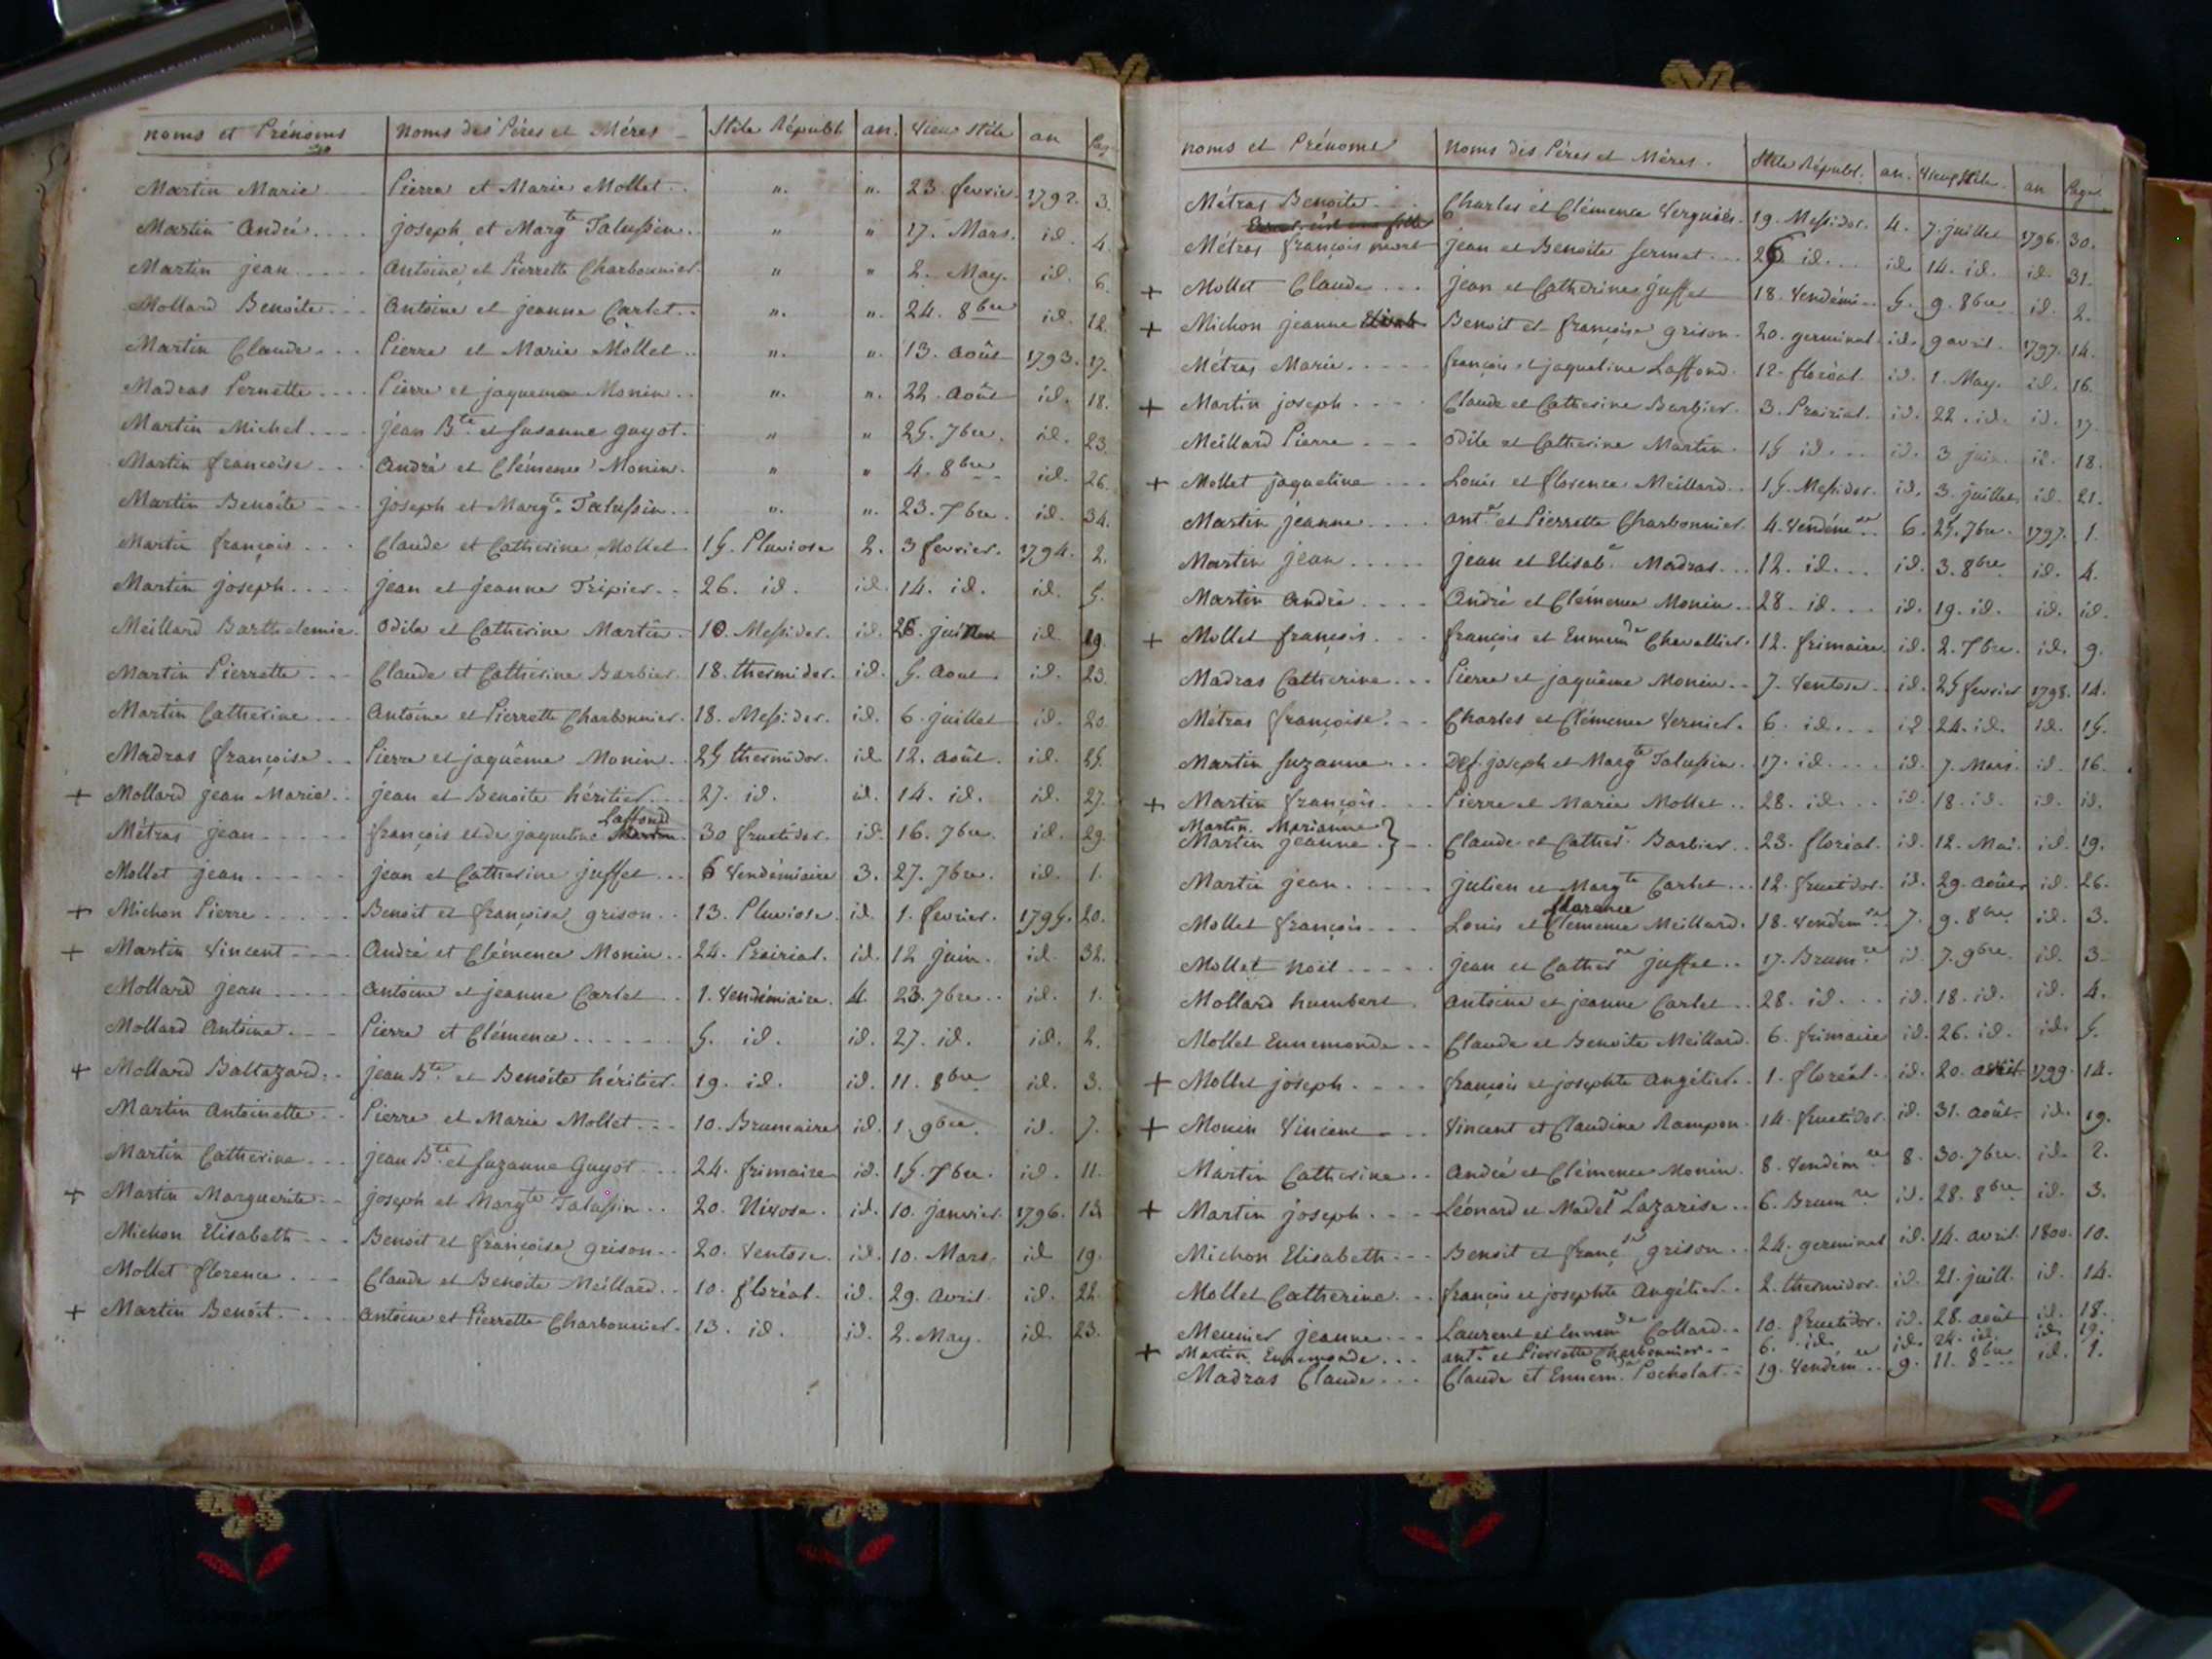 noms et Prénoms | Noms des Péres et Méres | Stile Républ. | an. | Vieux Stile | an | Pag.
Martin Marie | Pierre et Marie Mollet | ". | ". | 23. fevrie. | 1792. | 3.
Martin André | joseph et Marg.te Talussin | " | " | 17. Mars. | id. | 4.
Martin jean | Antoine et Pierrette Charbonnier | " | " | 2. May. | id. | 6.
Mollard Benoite | Antoine et jeanne Carlet | ". | ". | 24. 8bre | id. | 12.
Martin Claude | Pierre et Marie Mollet | ". | ". | 13. août | 1793. | 17.
Madras Pernette | Pierre et jaqueme Monin | ". | ". | 22. août | id. | 18.
Martin Michel | jean Bte. et Susanne guyot. | " | " | 25. 7bre. | id. | 23.
Martin françoise | André et Clémence Monin. | " | " | 4. 8bre | id. | 26.
Martin Benoite | joseph et Marg.te Talussin | ". | ". | 23. 7bre. | id. | 34.
Martin françois | Claude et Catherine Mollet | 15. Pluviose | 2. | 3 fevrier. | 1794. | 2.
Martin joseph | jean et jeanne Tripier | 26. id. | id. | 14. id. | id. | 5.
Meillard Barthelemie | Odile et Catherine Martin | 10. Messidor. | id. | 28. juin | id. | 19.
Martin Pierrette | Claude et Catherine Barbier | 18. thermidor. | id. | 5. Aout. | id. | 23.
Martin Catherine | Antoine et Pierrette Charbonnier. | 18. Messidor. | id. | 6. juillet | id. | 20.
Madras françoise | Pierre et jaquême Monin | 25 thermidor. | id. | 12. août. | id. | 25.
+ Mollard jean Marie | jean et Benoite héritier | 27. id. | id. | 14. id. | id. | 27.
Métras jean | françois et de jaqueline Laffond | 30 fructidor. | id. | 16. 7bre. | id. | 29.
Mollet jean | jean et Catherine juffet | 6 Vendémiaire | 3. | 27. 7bre. | id. | 1.
+ Michon Pierre | Benoit et françoise grison | 13. Pluviose. | id. | 1. fevrier. | 1795. | 20.
+ Martin Vincent | André et Clémence Monin | 24. Prairial. | id. | 12 juin. | id. | 32.
Mollard jean | Antoine et jeanne Carlet | 1. Vendémiaire. | 4. | 23. 7bre. | id. | 1.
Mollard Antoine | Pierre et Clémence | 5. id. | id. | 27. id. | id. | 2.
+ Mollard Baltazard | jean Bte. et Benoite héritier. | 19. id. | id. | 11. 8bre | id. | 3.
Martin Antoinette | Pierre et Marie Mollet | 10. Brumaire | id. | 1. 9bre. | id. | 7.
Martin Catherine | jean Bte. et Suzanne Guyot | 24. frimaire | id. | 15. 7bre. | id. | 11.
+ Martin Marguerite | joseph et Marg.te Talussin | 20. Nivose. | id. | 10. janvier. | 1796. | 13
Michon Elisabeth | Benoit et françoise grison | 20. Ventose. | id. | 10. Mars. | id | 19.
Mollet florence | Claude et Benoite Meillard | 10. floréal. | id. | 29. Avril. | id. | 22.
+ Martin Benoit | Antoine et Pierrette Charbonnier. | 13. id. | id. | 2. May. | id. | 23.
noms et Prénoms | Noms des Péres et Méres. | Stile Républ. | an. | Vieux Stile | an | Page
Métras Benoite | Charles et Clémence Vergnier. | 19. Messidor. | 4. | 7. juillet | 1796. | 30.
Métras françois | jean et Benoite fermet | 26 id. | id. | 14. id. | id. | 31.
+ Mollet Claude | jean et Catherine juffet | 18. Vendémi | 5. | 9. 8bre | id. | 2.
+ Michon jeanne | Benoit et françoise grison. | 20. germinal. | id. | 9 avril. | 1797. | 14.
Métras Marie | françois et jaqueline Laffond. | 12. floréal. | id. | 1. May. | id. | 16.
+ Martin joseph | Claude et Catherine Barbier. | 3. Prairial. | id. | 22. id. | id. | 17.
Meillard Pierre | Odile et Catherine Martin. | 15 id. | id. | 3 juin | id. | 18.
+ Mollet jaqueline | Louis et florence Meillard | 15. Messidor. | id. | 3. juillet. | id. | 21.
Martin jeanne | Ant.e et Pierrette Charbonnier. | 4. Vendém.re | 6. | 25. 7bre. | 1797. | 1.
Martin jean | jean et Elisab. Madras | 12. id. | id. | 3. 8bre | id. | 4.
Martin André | André et Clémence Monin | 28. id. | id. | 19. id. | id. | id.
+ Mollet françois | françois et Ennemde Chevallier. | 12. frimaire. | id. | 2. 7bre. | id. | 9.
Madras Catherine | Pierre et jaquême Monin | 7. Ventose. | id. | 25 fevrier | 1798. | 14.
Métras françoise | Charles et Clémence Vernier. | 6. id. | id. | 24. id. | id. | 15.
Martin Suzanne | Def. joseph et Marg.te Talussin. | 17. id. | id. | 7. Mars. | id. | 16.
+ Martin françois | Pierre et Marie Mollet | 28. id. | id. | 18. id. | id. | id.
Martin Marianne
Martin jeanne } | Claude et Cather. Barbier | 23. floréal. | id. | 12. Mai. | id. | 19.
Martin jean | julien et Marg.te Carlet | 12. fructidor. | id. | 29. août. | id. | 26.
Mollet françois | Louis et florence Meillard. | 18. Vendém.re | 7. | 9. 8bre | id. | 3.
Mollet Noël | jean et Cather.ne juffet | 17. Brum.re | id. | 7. 9bre. | id. | 3.
Mollard humbert | Antoine et jeanne Carlet | 28. id. | id. | 18. id. | id. | 4.
Mollet Ennemonde | Claude et Benoite Meillard. | 6. frimaire | id. | 26. id. | id. | 5.
+ Mollet joseph | françois et josephte Angélier. | 1. floréal. | id. | 20. avril | 1799. | 14.
+ Monin Vincent | Vincent et Claudine Rampon. | 14. fructidor. | id. | 31. août. | id. | 19.
Martin Catherine | André et Clémence Monin. | 8. Vendém.re | 8. | 30. 7bre. | id. | 2.
+ Martin joseph | Léonard et Madel.e Lazarise | 6. Brum.re | id. | 28. 8bre | id. | 3.
Michon Elisabeth | Benoit et franç.se grison | 24. germinal | id. | 14. avril. | 1800. | 10.
Mollet Catherine | françois et josephte Angélier | 2. thermidor. | id. | 21. juill. | id. | 14.
Meunier jeanne | Laurent et Ennemde Collard | 10. fructidor. | id. | 28. août | id. | 18.
+ Martin Ennemonde | ant.e et Pierrette Charbonnier | 6. id. | id. | 24. id. | id. | 19.
Madras Claude | Claude et Ennem.de Pocholat | 19. Vendém.re | 9. | 11. 8bre | id. | 1.